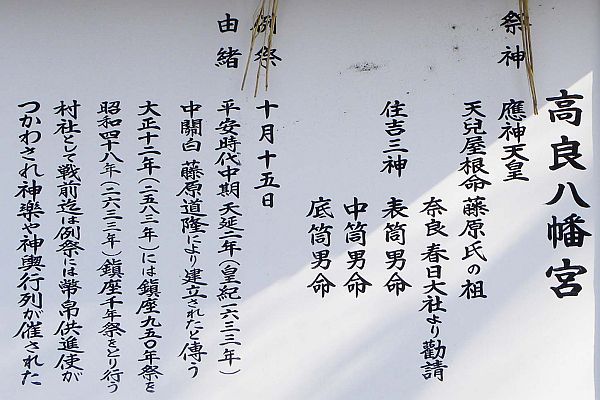 高良八幡宮
祭神
應神天皇
天兒屋根命 藤原氏の祖
奈良 春日大社より勸請
住吉三神 表筒男命
中筒男命
底筒男命
例祭 十月十五日
由緒 平安時代中期 天延一年(皇紀一六三三年)
中關白 藤原道隆により建立されたと傳う
大正十二年(二五八三年)には鎮座九五〇年祭を
昭和四十八年(二六三三年)鎮座千年祭をとり行う
村社として戦前迄は例祭には幣帛供進使が
つかわされ神樂や神輿行列が催された